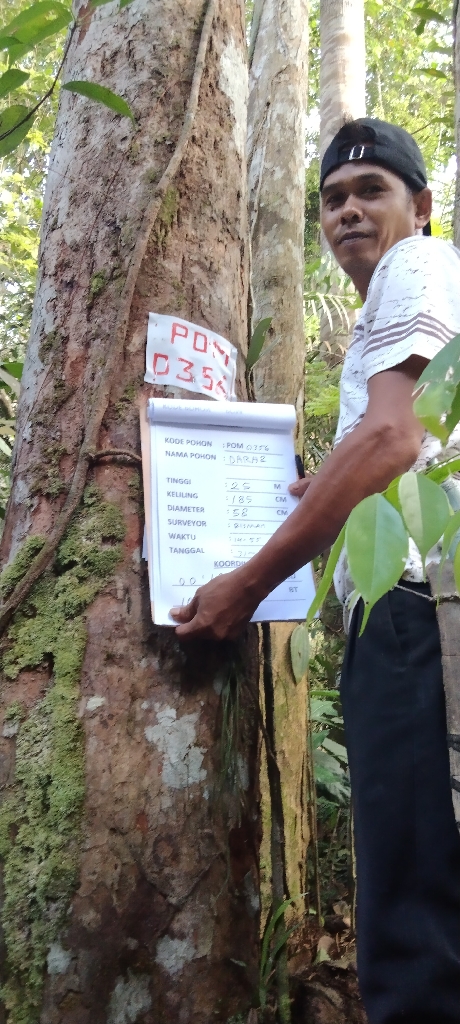 POM
0356
KODE POHON : POM 0356
NAMA POHON : DARAH
TINGGI : 25 M
KELILING : 185 CM
DIAMETER : 58 CM
SURVEYOR :
WAKTU :
TANGGAL :
KOORDIN
BT